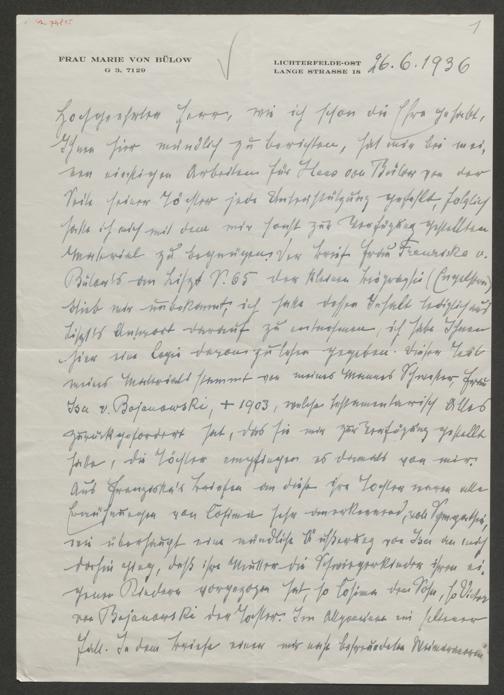 1
FRAU MARIE VON BÜLOW
G 3. 7129
LICHTERFELDE-OST
LANGE STRASSE 18
26.6.1936
Hochgeehrter Herr, wie ich schon die Ehre gehabt,
Ihnen hier mündlich zu berichten, hat mir bei mei-
nen einstigen Arbeiten für Hans von Bülow von der
Seite seiner Töchter jede Unterstützung gefehlt, folglich
hatte ich mich mit dem mir sonst zur Verfügung gestellten
Material zu begnügen. Der Brief Frau Franziska v.
Bülow's an Liszt S. 65 der kleinen Biographie (Engelhorn)
blieb mir unbekannt, ich hatte dessen Inhalt lediglich aus
Liszt's Antwort darauf zu entnehmen, ich habe Ihnen
hier eine Copie davon zu lesen gegeben. Dieser Teil
meines Materials stammt von meines Mannes Schwester Frau
Isa v. Bojanowski, + 1903, welche testamentarisch Alles
zurückgefordert hat, das sie mir zur Verfügung gestellt
hatte, die Töchter empfingen es damals von mir.
Aus Franziska's Briefen an diese ihre Tochter waren alle
Erwähnungen von Cosima sehr anerkennend, voll Sympathie,
wie überhaupt eine mündliche Äußerung von Isa an mich
dahin ging, daß ihre Mutter die Schwiegerkinder ihren ei-
genen Kindern vorgezogen hat, so Cosima dem Sohn, so Victor
von Bojanowski der Tochter. Im Allgemeinen ein seltener
Fall. In dem Briefe einer mir nahe befreundeten